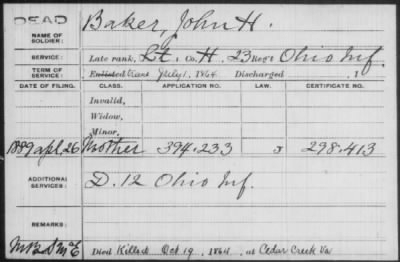 DEAD
NAME OF SOLDIER: Baker, John H.
SERVICE: Late rank, Lt, Co. H, 23 Reg't Ohio Inf.
TERM OF SERVICE: Enlisted July 1, 1864 Discharged , 1
DATE OF FILING. CLASS. APPLICATION NO. LAW. CERTIFICATE NO.
Invalid,
Widow,
Minor,
1889 Apl. 26 Mother 394.233 298.413
ADDITIONAL SERVICES: D. 12 Ohio Inf.
REMARKS:
Died Killed Oct 19, 1864, at Cedar Creek Va